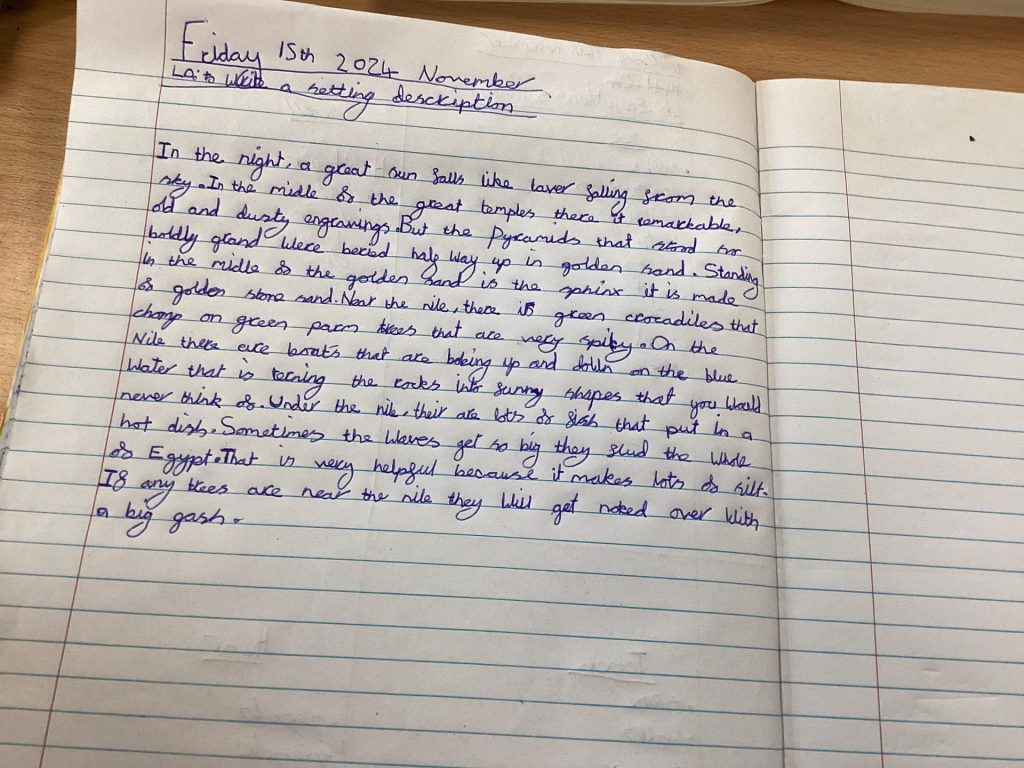 Friday 15th 2024 November
LO: to write a setting description
In the night, a great sun falls like laver falling from the
sky. In the midle of the great temples there it remarkable,
old and dusty engravings. But the Pyramids that stood so
boldly grand were beried half way up in golden sand. Standing
in the midle of the golden sand is the sphinx it is made
of golden stone sand. Near the nile, there is green crocadiles that
chomp on green parm trees that are very spiky. On the
Nile there are boats that are bobing up and down on the blue
water that is torning the rocks into funny shapes that you would
never think of. Under the nile, their are lots of fish that put in a
hot dish. Sometimes the waves get so big they flud the whole
of Egypt. That is very helpful because it makes lots of silt.
If any trees are near the nile they will get noked over with
a big gash.